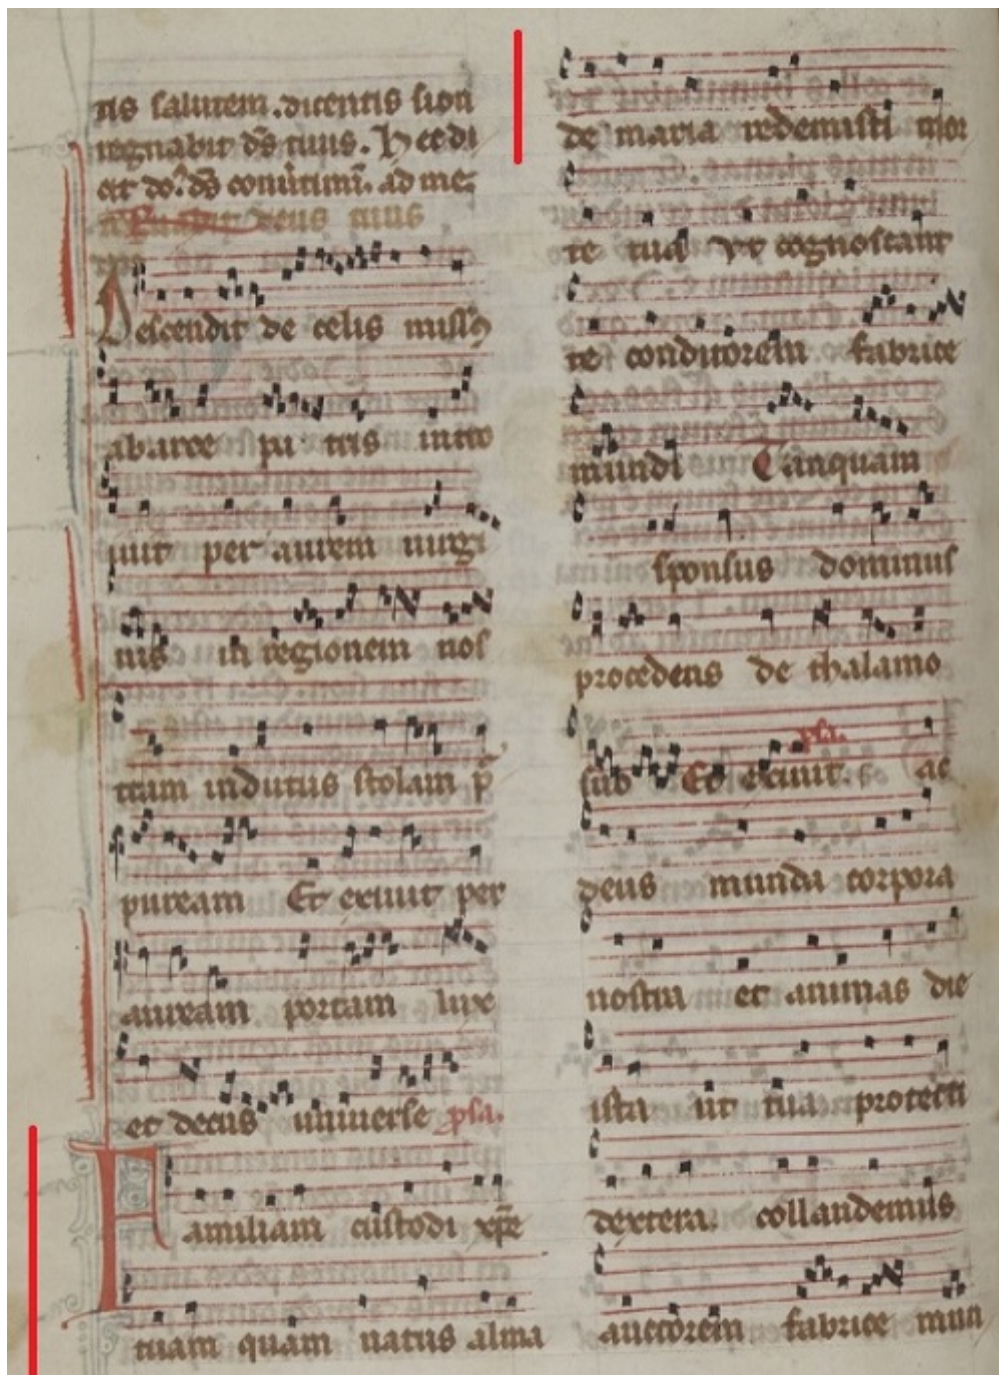 tis salutem. dicentis sion
regnabit ds tuus. Hec di
cit do. ds
deus tuus
Descendit de celis missus
ab arce pa tris intro
iuit per aurem uirgi
nis in regionem nos
tram indutus stolam pur
puream Et exiuit per
auream portam lux
et decus uniuerse psa.
Familiam custodi xpe
tuam quam natus alma
de maria redemisti mor
te tua Vt cognoscant
te conditorem fabrice
mundi Tanquam
sponsus dominus
procedens de thalamo
suo Et exiuit. psa. ac
deus munda corpora
nostra et animas die
ista ut tua protecti
dextera. collaudemus
auctorem fabrice mun